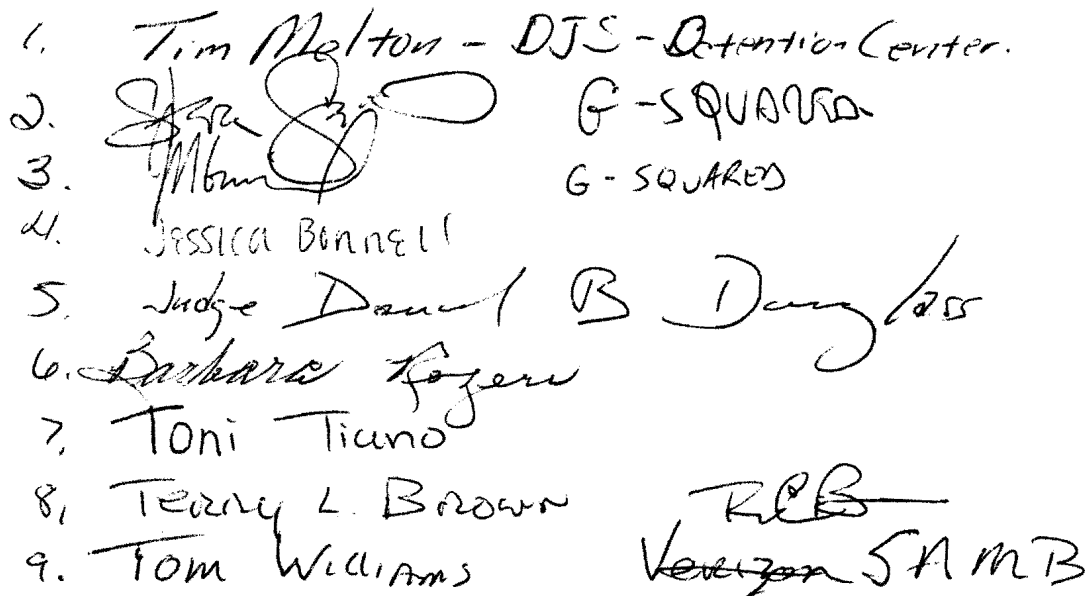 1. Tim Melton - DJS - Detention Center.
2. G-SQUARED
3. G-SQUARED
4. Jessica Bonnell
5. Judge Daniel B Douglass
6. Barbara Rogers
7. Toni Tiano
8, Terry L. Brown
9. Tom Williams Verizon SAMB